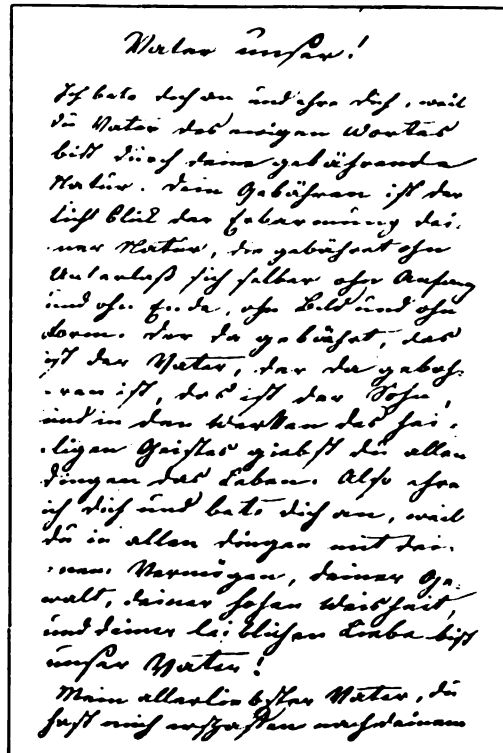 Vater unser!
Ich bete dich an und ehre dich, weil
du Vater des ewigen Wortes
bist durch deine gebährende
Natur. Dein Gebähren ist der
licht Blick der Erbarmung dei-
-ner Natur, die gebähret ohn
Unterlaß sich selber ohn Anfang
und ohn Ende, ohn Bild und ohn
Form. Der da gebährt, das
ist der Vater, der da geboh-
-ren ist, das ist der Sohn,
und in den Werken des hei-
-ligen Geistes giebst du allen
Dingen das Leben. Also ehre
ich dich und bete dich an, weil
du in allen Dingen mit dei-
-nem Vermögen, deiner Ge-
walt, deiner hohen Weisheit,
und deiner lieblichen Liebe bist
unser Vater!
Mein allerliebster Vater, du
hast mich erschaffen nach deinem